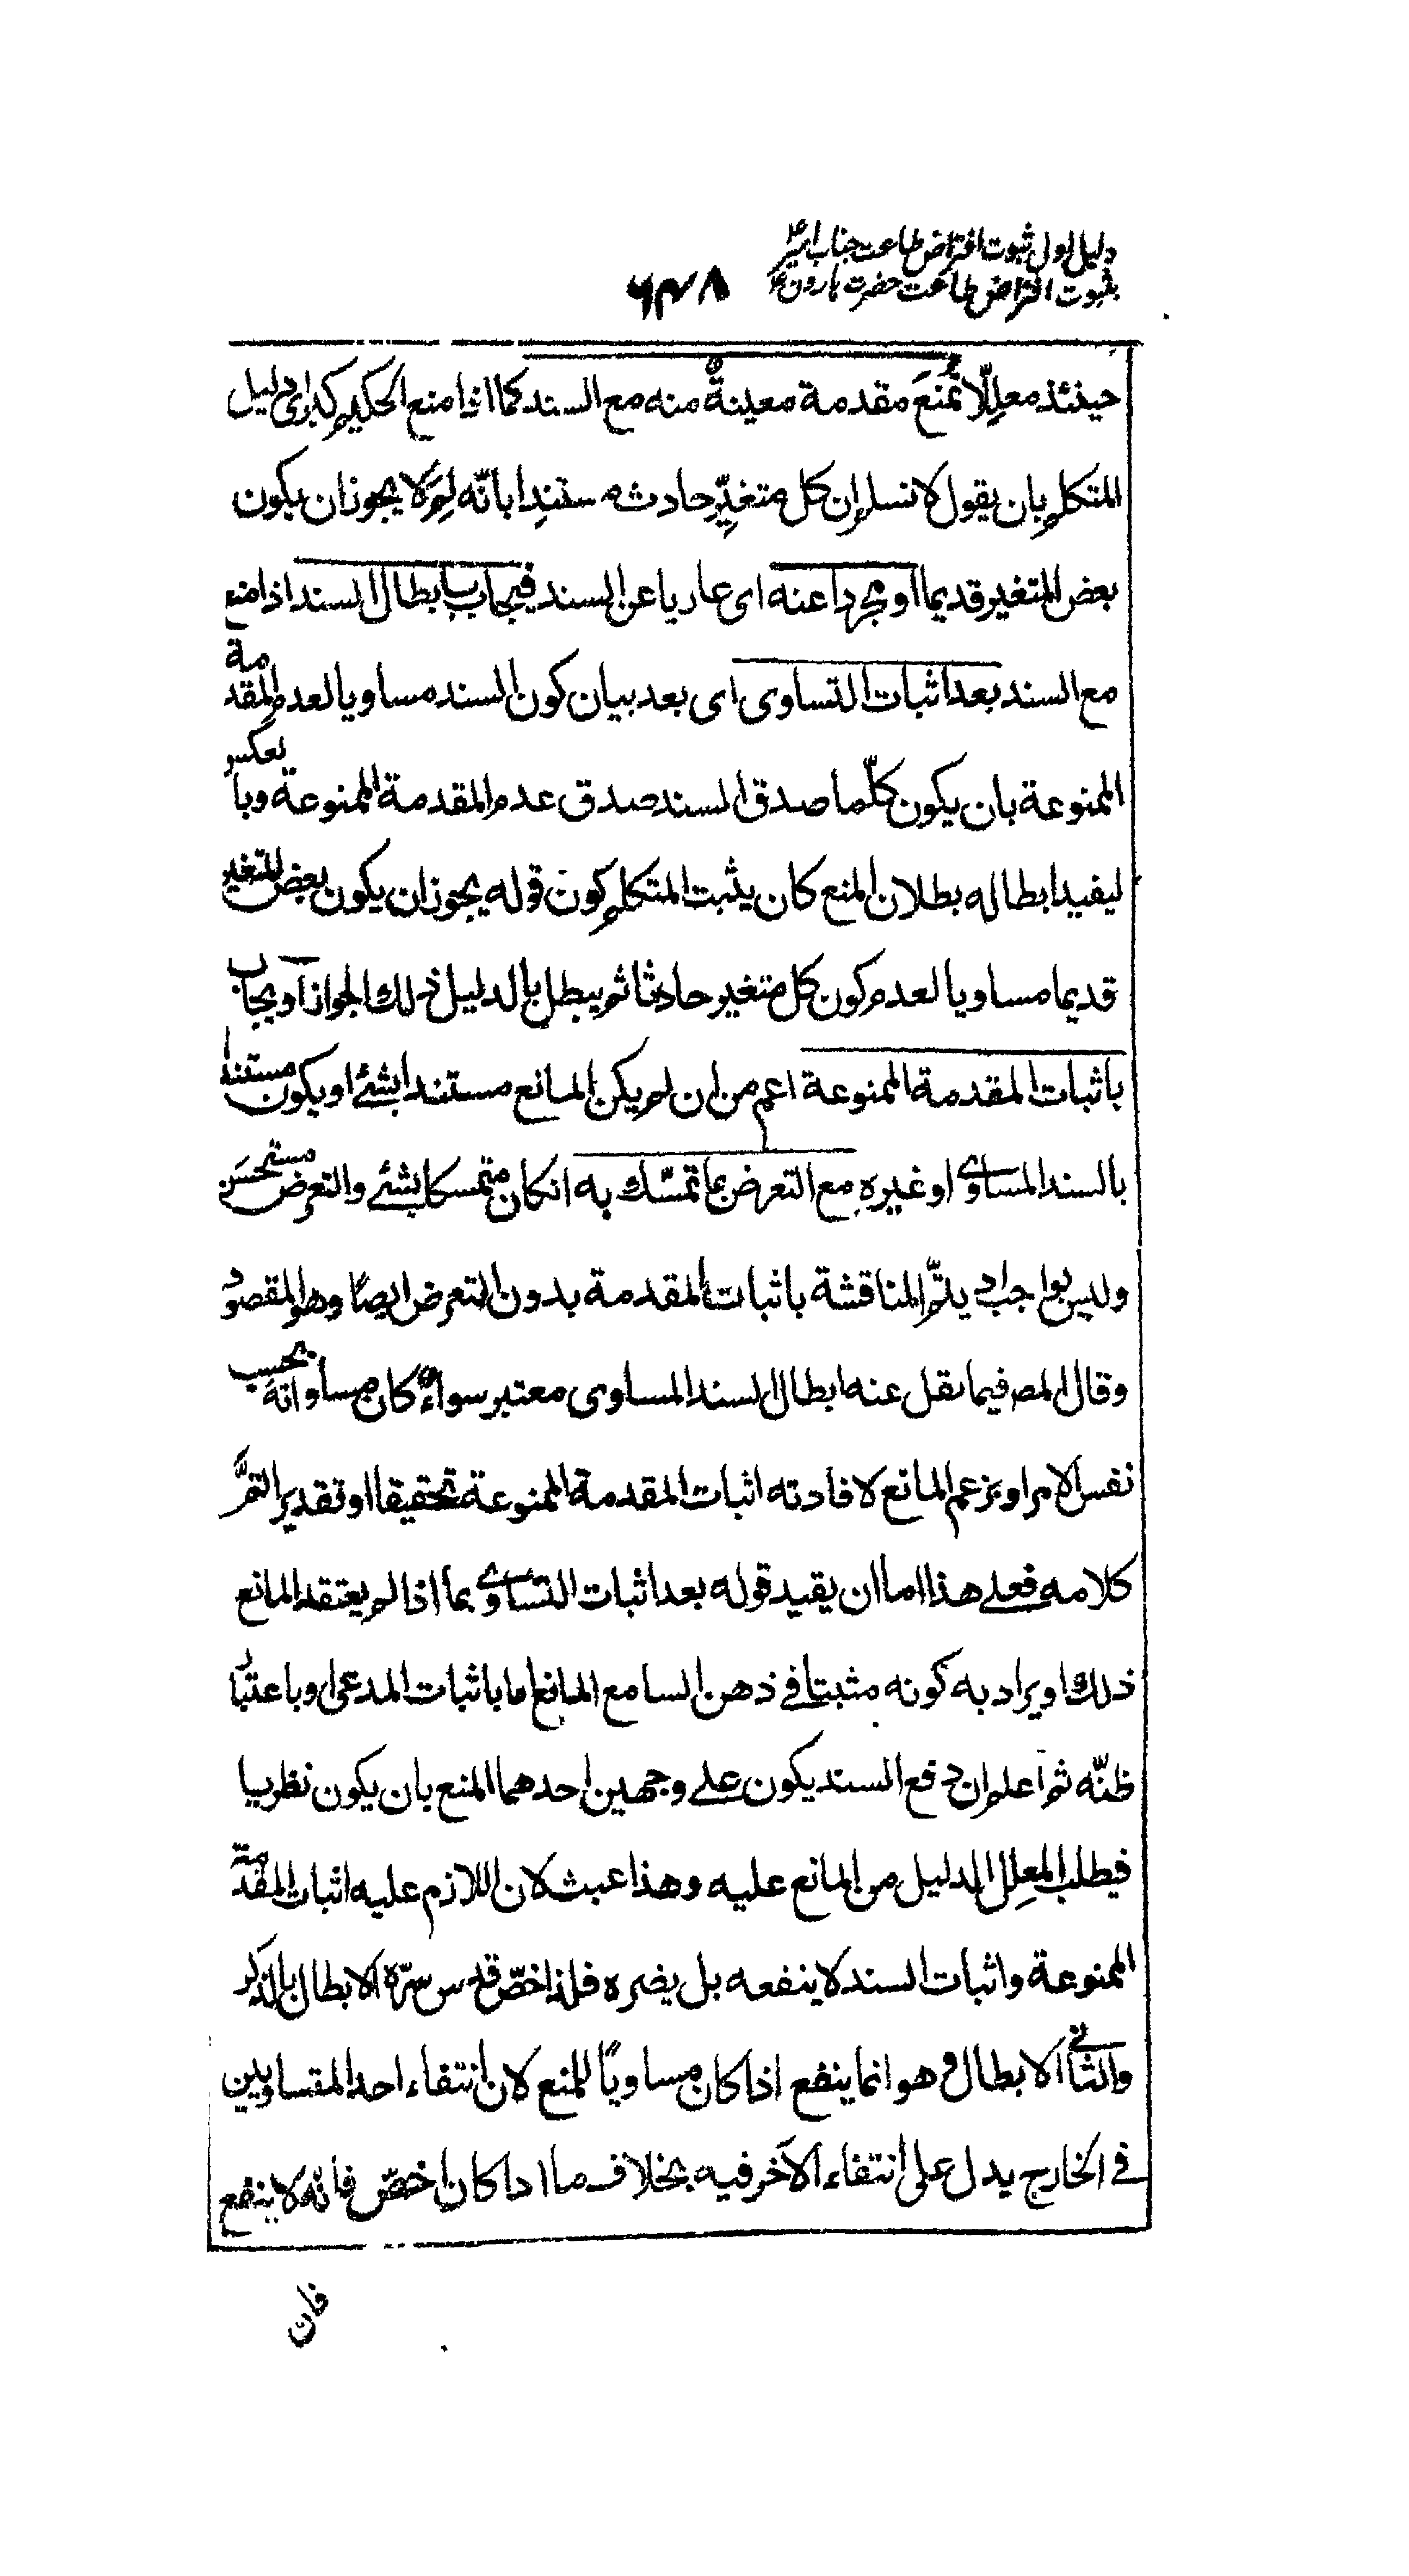 دلیل اول ثبوت افتراض طاعت جناب امیرؑ
بثبوت افتراض طاعت حضرت هارونؑ
۶۳۸
حينئذ معلِّلًا تُمنَعُ مقدمة معينةٌ منه مع السند كما اذا منع الحكيم كبرى دليل
المتكلم بان يقول لا نسلم ان كل متغيِّرٍ حادث مستنِدا بانّه لِمَ لا يجوز ان يكون
بعض المتغير قديما او مجردا عنه اى عاريا عن السند فيجاب بابطال السند اذا منع
مع السند بعد اثبات التساوى اى بعد بيان كون السند مساويا لعدم المقدمة
الممنوعة بان يكون كلّما صدق السند صدق عدم المقدمة الممنوعة وبالعكس
ليفيد ابطاله بطلان المنع كان يثبت المتكلم كون قوله يجوز ان يكون بعض المتغير
قديما مساويا لعدم كون كل متغير حادثا ثم يبطل بالدليل ذلك الجواز او يجاب
باثبات المقدمة الممنوعة اعم من ان لم يكن المانع مستندا بشئ او يكون مستندا
بالسند المساوى او غيره مع التعرض بما تمسّك به ان كان متمسكا بشئ والتعرض مستحسَن
وليس بواجب اد يتمّ المناقشة باثبات المقدمة بدون التعرض ايضًا وهو المقصود
وقال المص فيما نقل عنه ابطال السند المساوى معتبر سواءٌ كان مساواته بحسب
نفس الامر او بزعم المانع لافادته اثبات المقدمة الممنوعة تحقيقا او تقديرا تمَّ
كلامه فعلى هذا اما ان يقيد قوله بعد اثبات التساوى بما اذا لم يعتقد المانع
ذلك او يراد به كونه مثبتا في ذهن السامع المانع اما باثبات المدعى او باعتبار
ظنّه ثم اعلم ان دفع السند يكون على وجهين احدهما المنع بان يكون نظريا
فيطلب المعلِل الدليل من المانع عليه وهذا عبث لان اللازم عليه اثبات المقدمة
الممنوعة واثبات السند لا ينفعه بل يضره فلذا خصّ قدس سرّه الابطال بالذكر
والثانى الابطال وهو انما ينفع اذا كان مساويًا للمنع لان انتفاء احد المتساويين
في الخارج يدل على انتفاء الآخر فيه بخلاف ما اذا كان اخصّ فانّه لا ينفع
فان